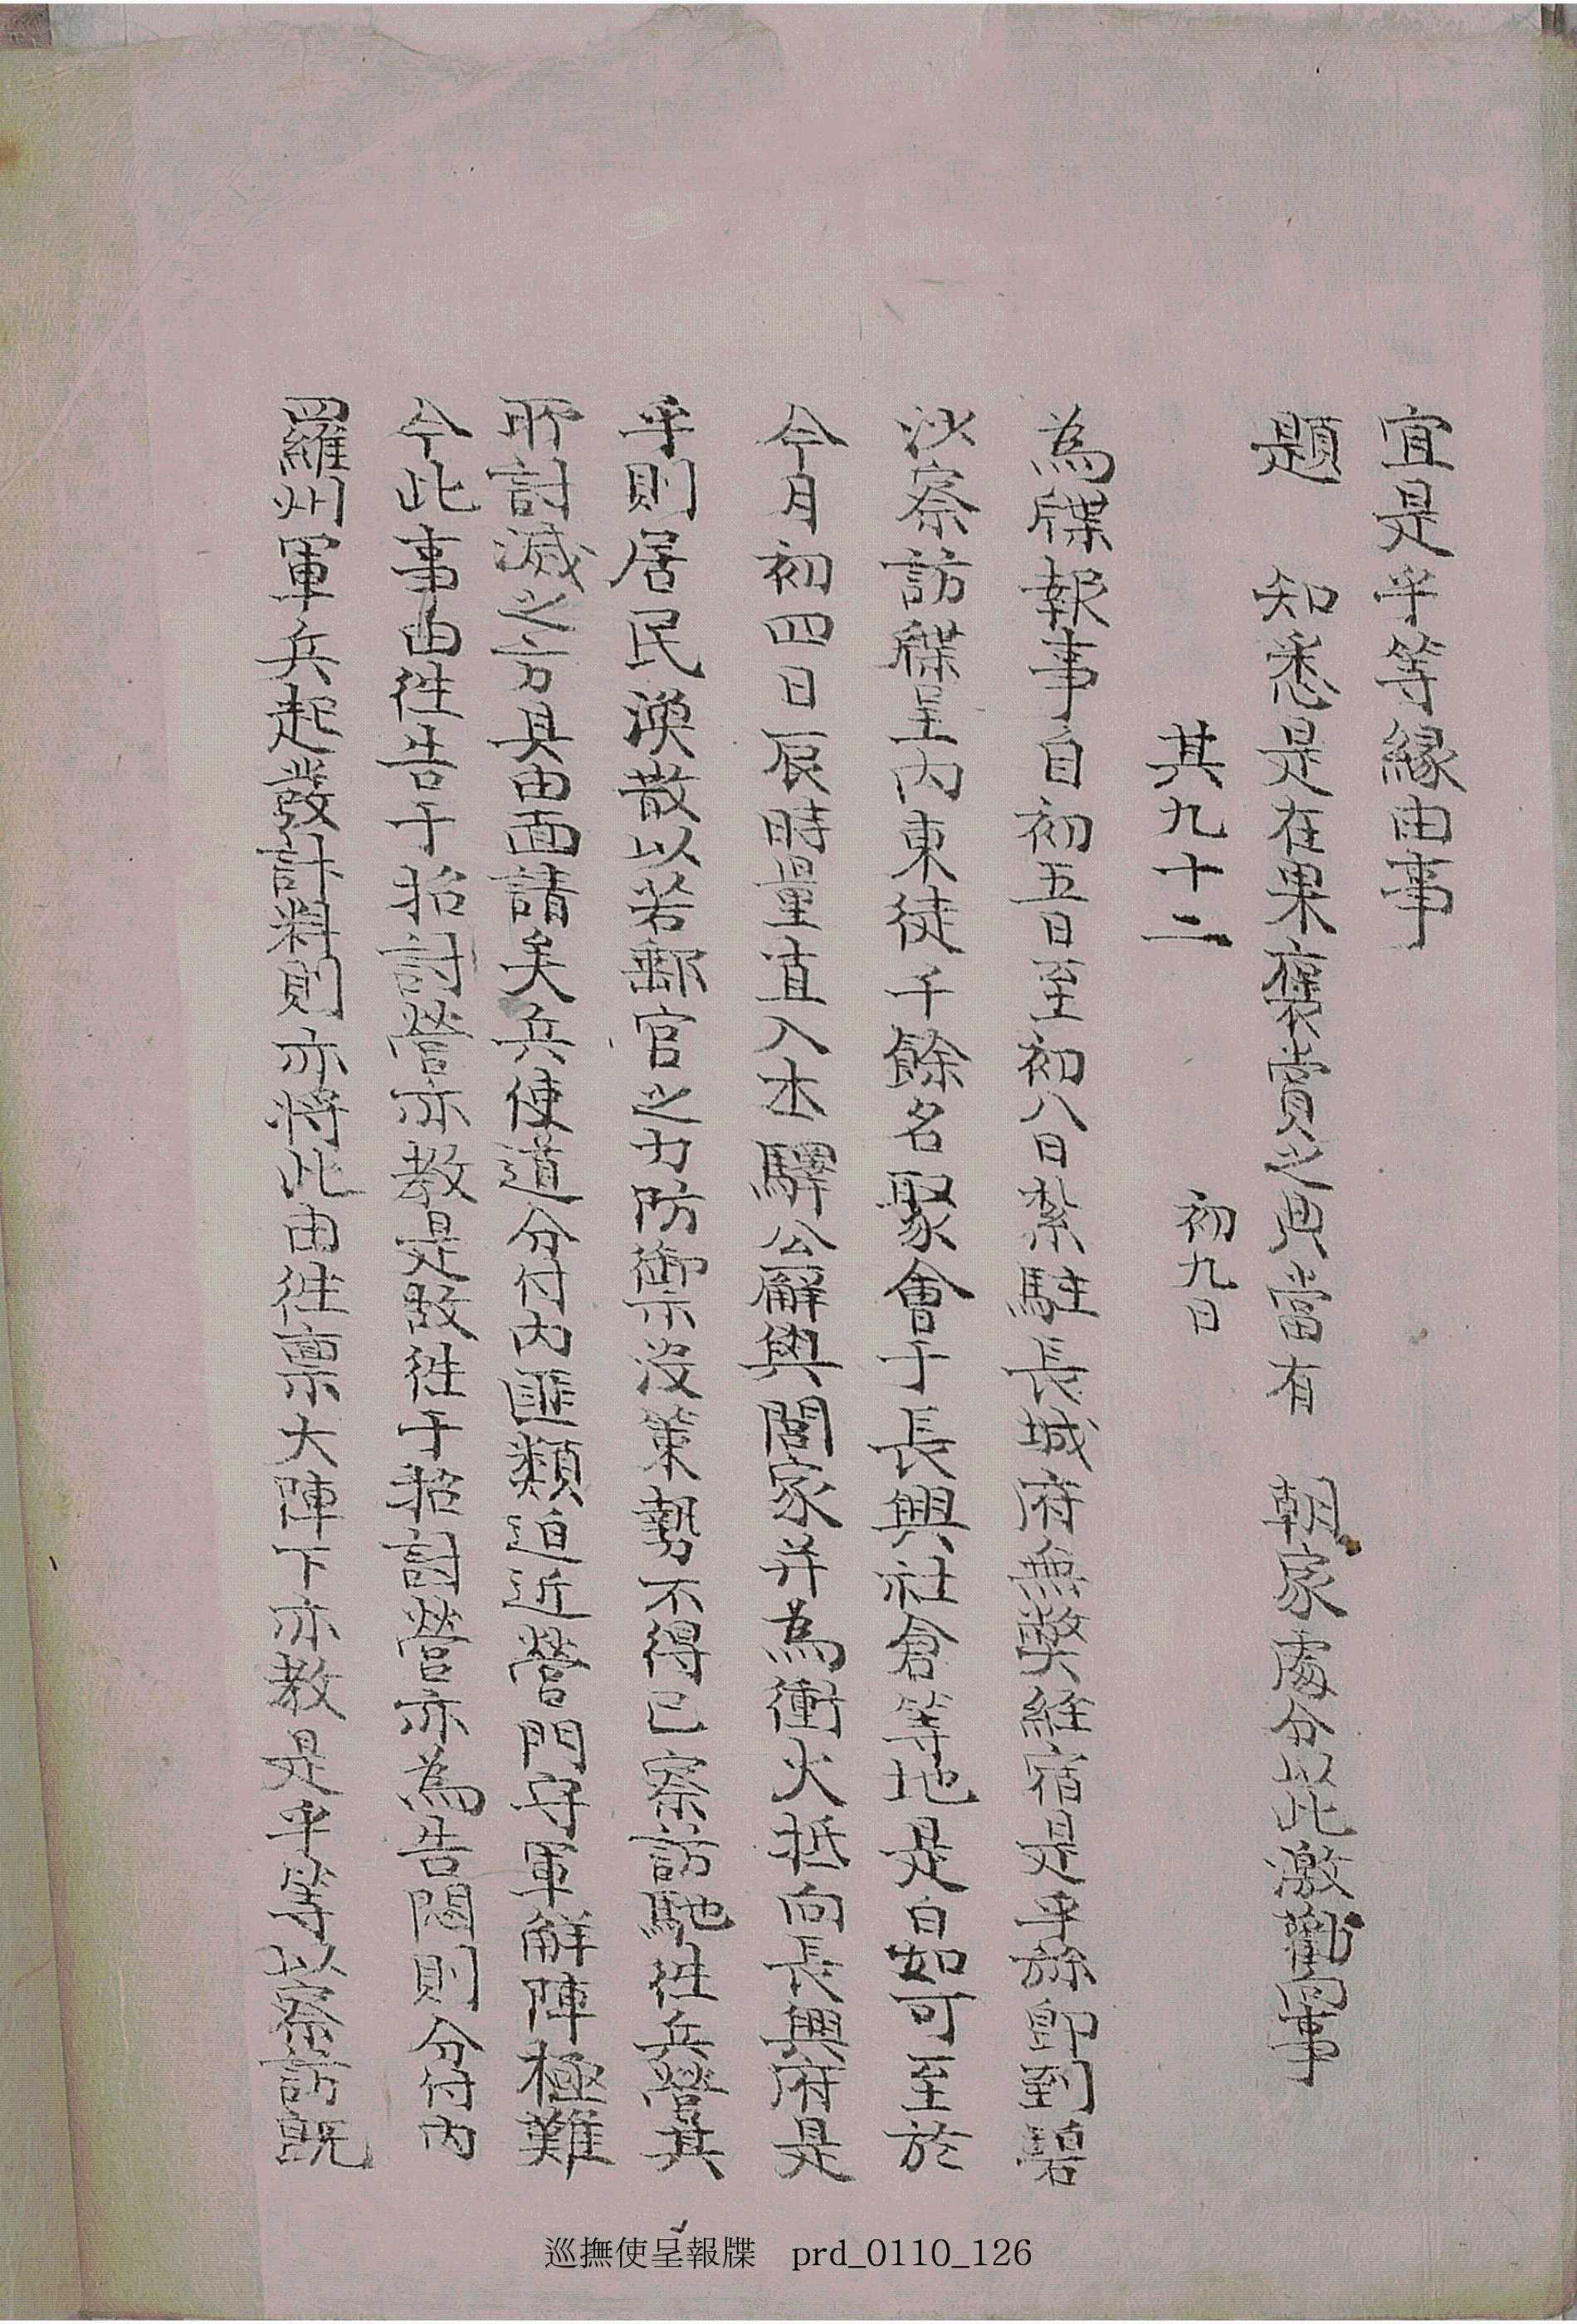 宜是乎等緣由事
題　知悉是在果褒賞之典當有　朝家處分以此激勸向事
其九十二　初九日
為牒報事自初五日至初八日紮駐長城府無弊經宿是乎旀卽到碧
沙察訪牒呈內東徒千餘名聚會于長興社倉等地是白如可至於
今月初四日辰時量直入本驛公廨與閭家并為衝火抵向長興府是
乎則居民渙散以若郵官之力防禦沒策勢不得已察訪馳往兵營其
所討滅之方具由面請矣兵使道分付內匪類迫近營門守軍解陣極難
今此事由往告于招討營亦教是故往于招討營亦為告闊則分付內
羅州軍兵起發計料則亦將此由往稟大陣下亦教是乎等以察訪旣
巡撫使呈報牒　prd_0110_126